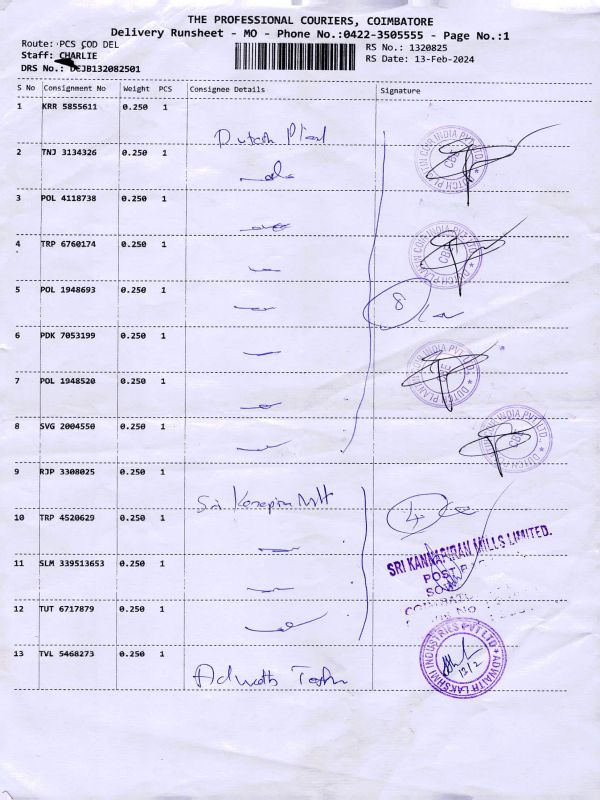 THE PROFESSIONAL COURIERS, COIMBATORE
Delivery Runsheet - MO - Phone No.:0422-3505555 - Page No.:1
Route: PCS COD DEL
RS No.: 1320825
Staff: CHARLIE
RS Date: 13-Feb-2024
DRS No.: DEJB132082501
S No Consignment No Weight PCS Consignee Details Signature
1 KRR 5855611 0.250 1
Dutch Plant
2 TNJ 3134326 0.250 1
3 POL 4118738 0.250 1
4 TRP 6760174 0.250 1
5 POL 1948693 0.250 1
8
6 PDK 7053199 0.250 1
7 POL 1948520 0.250 1
8 SVG 2004550 0.250 1
9 RJP 3308025 0.250 1
Sri
4
10 TRP 4520629 0.250 1
SRI KANNAPIRAN MILLS LIMITED.
POST
11 SLM 339513653 0.250 1
12 TUT 6717879 0.250 1
13 TVL 5468273 0.250 1
ADWAITH LAKSHMI INDUSTRIES PVT LTD
13/2